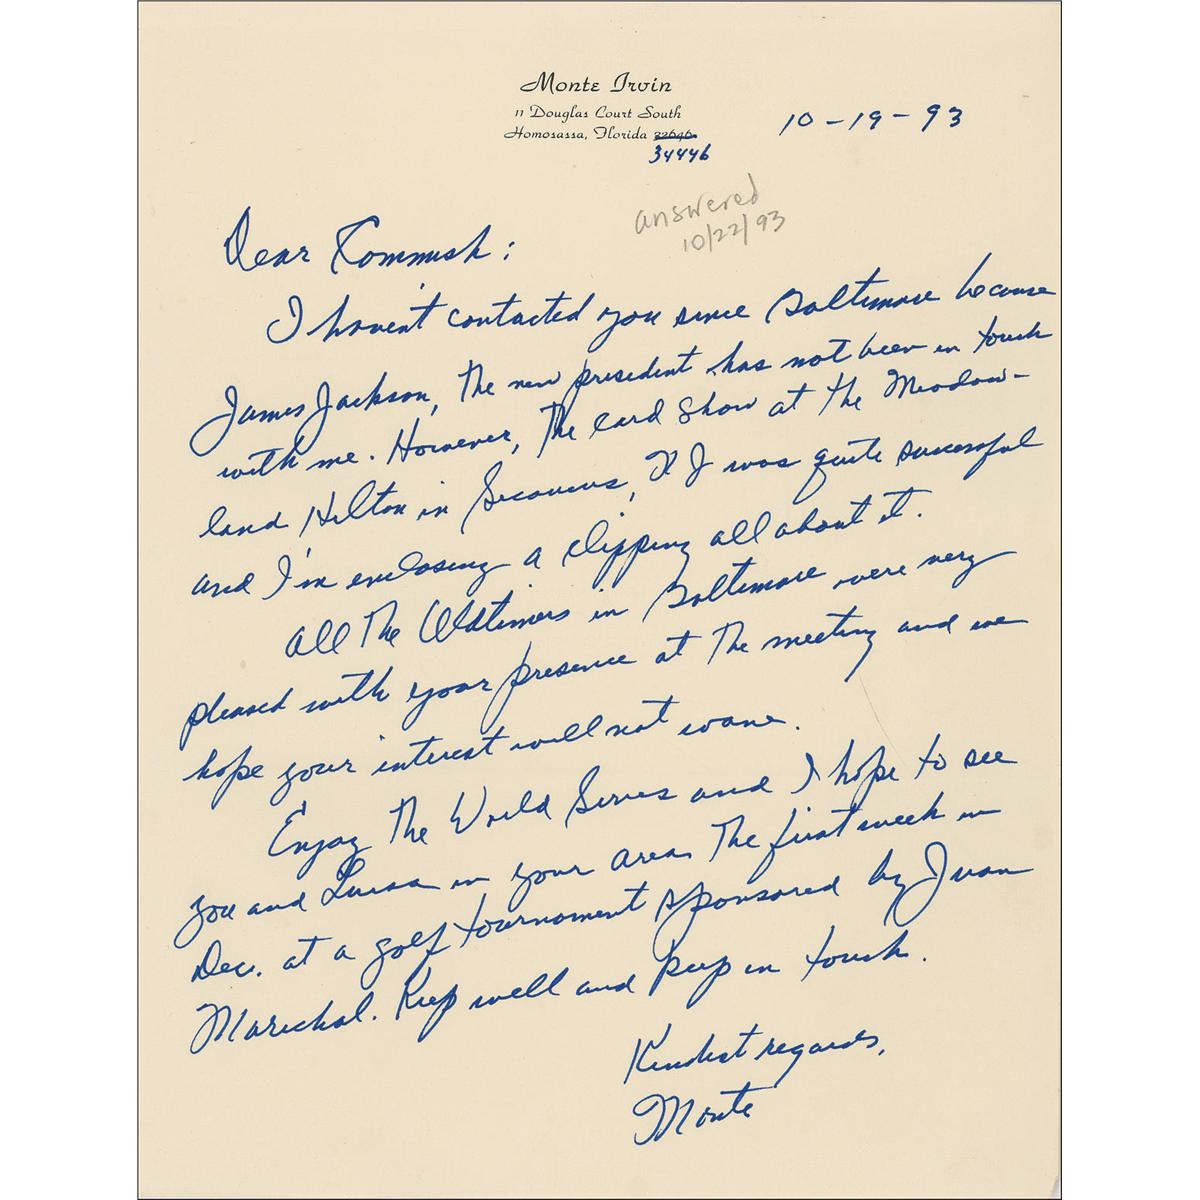 Monte Irvin
11 Douglas Court South
Homosassa, Florida 32646
34446
10-19-93
answered
10/22/93
Dear Kommish:
I haven't contacted you since Baltimore because
James Jackson, the new president has not been in touch
with me. However, the card show at the Meadow-
land Hilton in Secaucus, N J was quite successful
and I'm enclosing a clipping all about it.
All the Oldtimers in Baltimore were very
pleased with your presence at the meeting and we
hope your interest will not wane.
Enjoy the World Series and I hope to see
you and Luisa in your area the first week in
Dec. at a golf tournament sponsored by Juan
Marichal. Keep well and keep in touch.
Kindest regards,
Monte